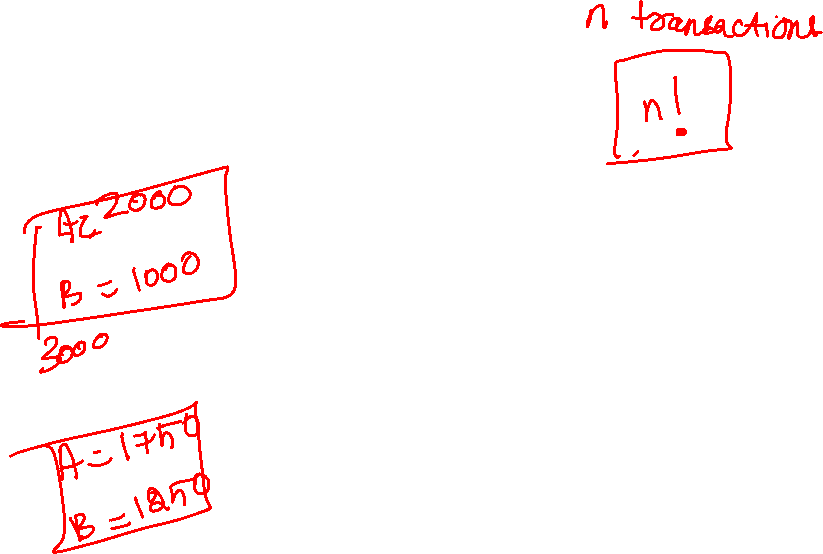 n transactions
n!
A = 2000
B = 1000
3000
A = 1750
B = 1250